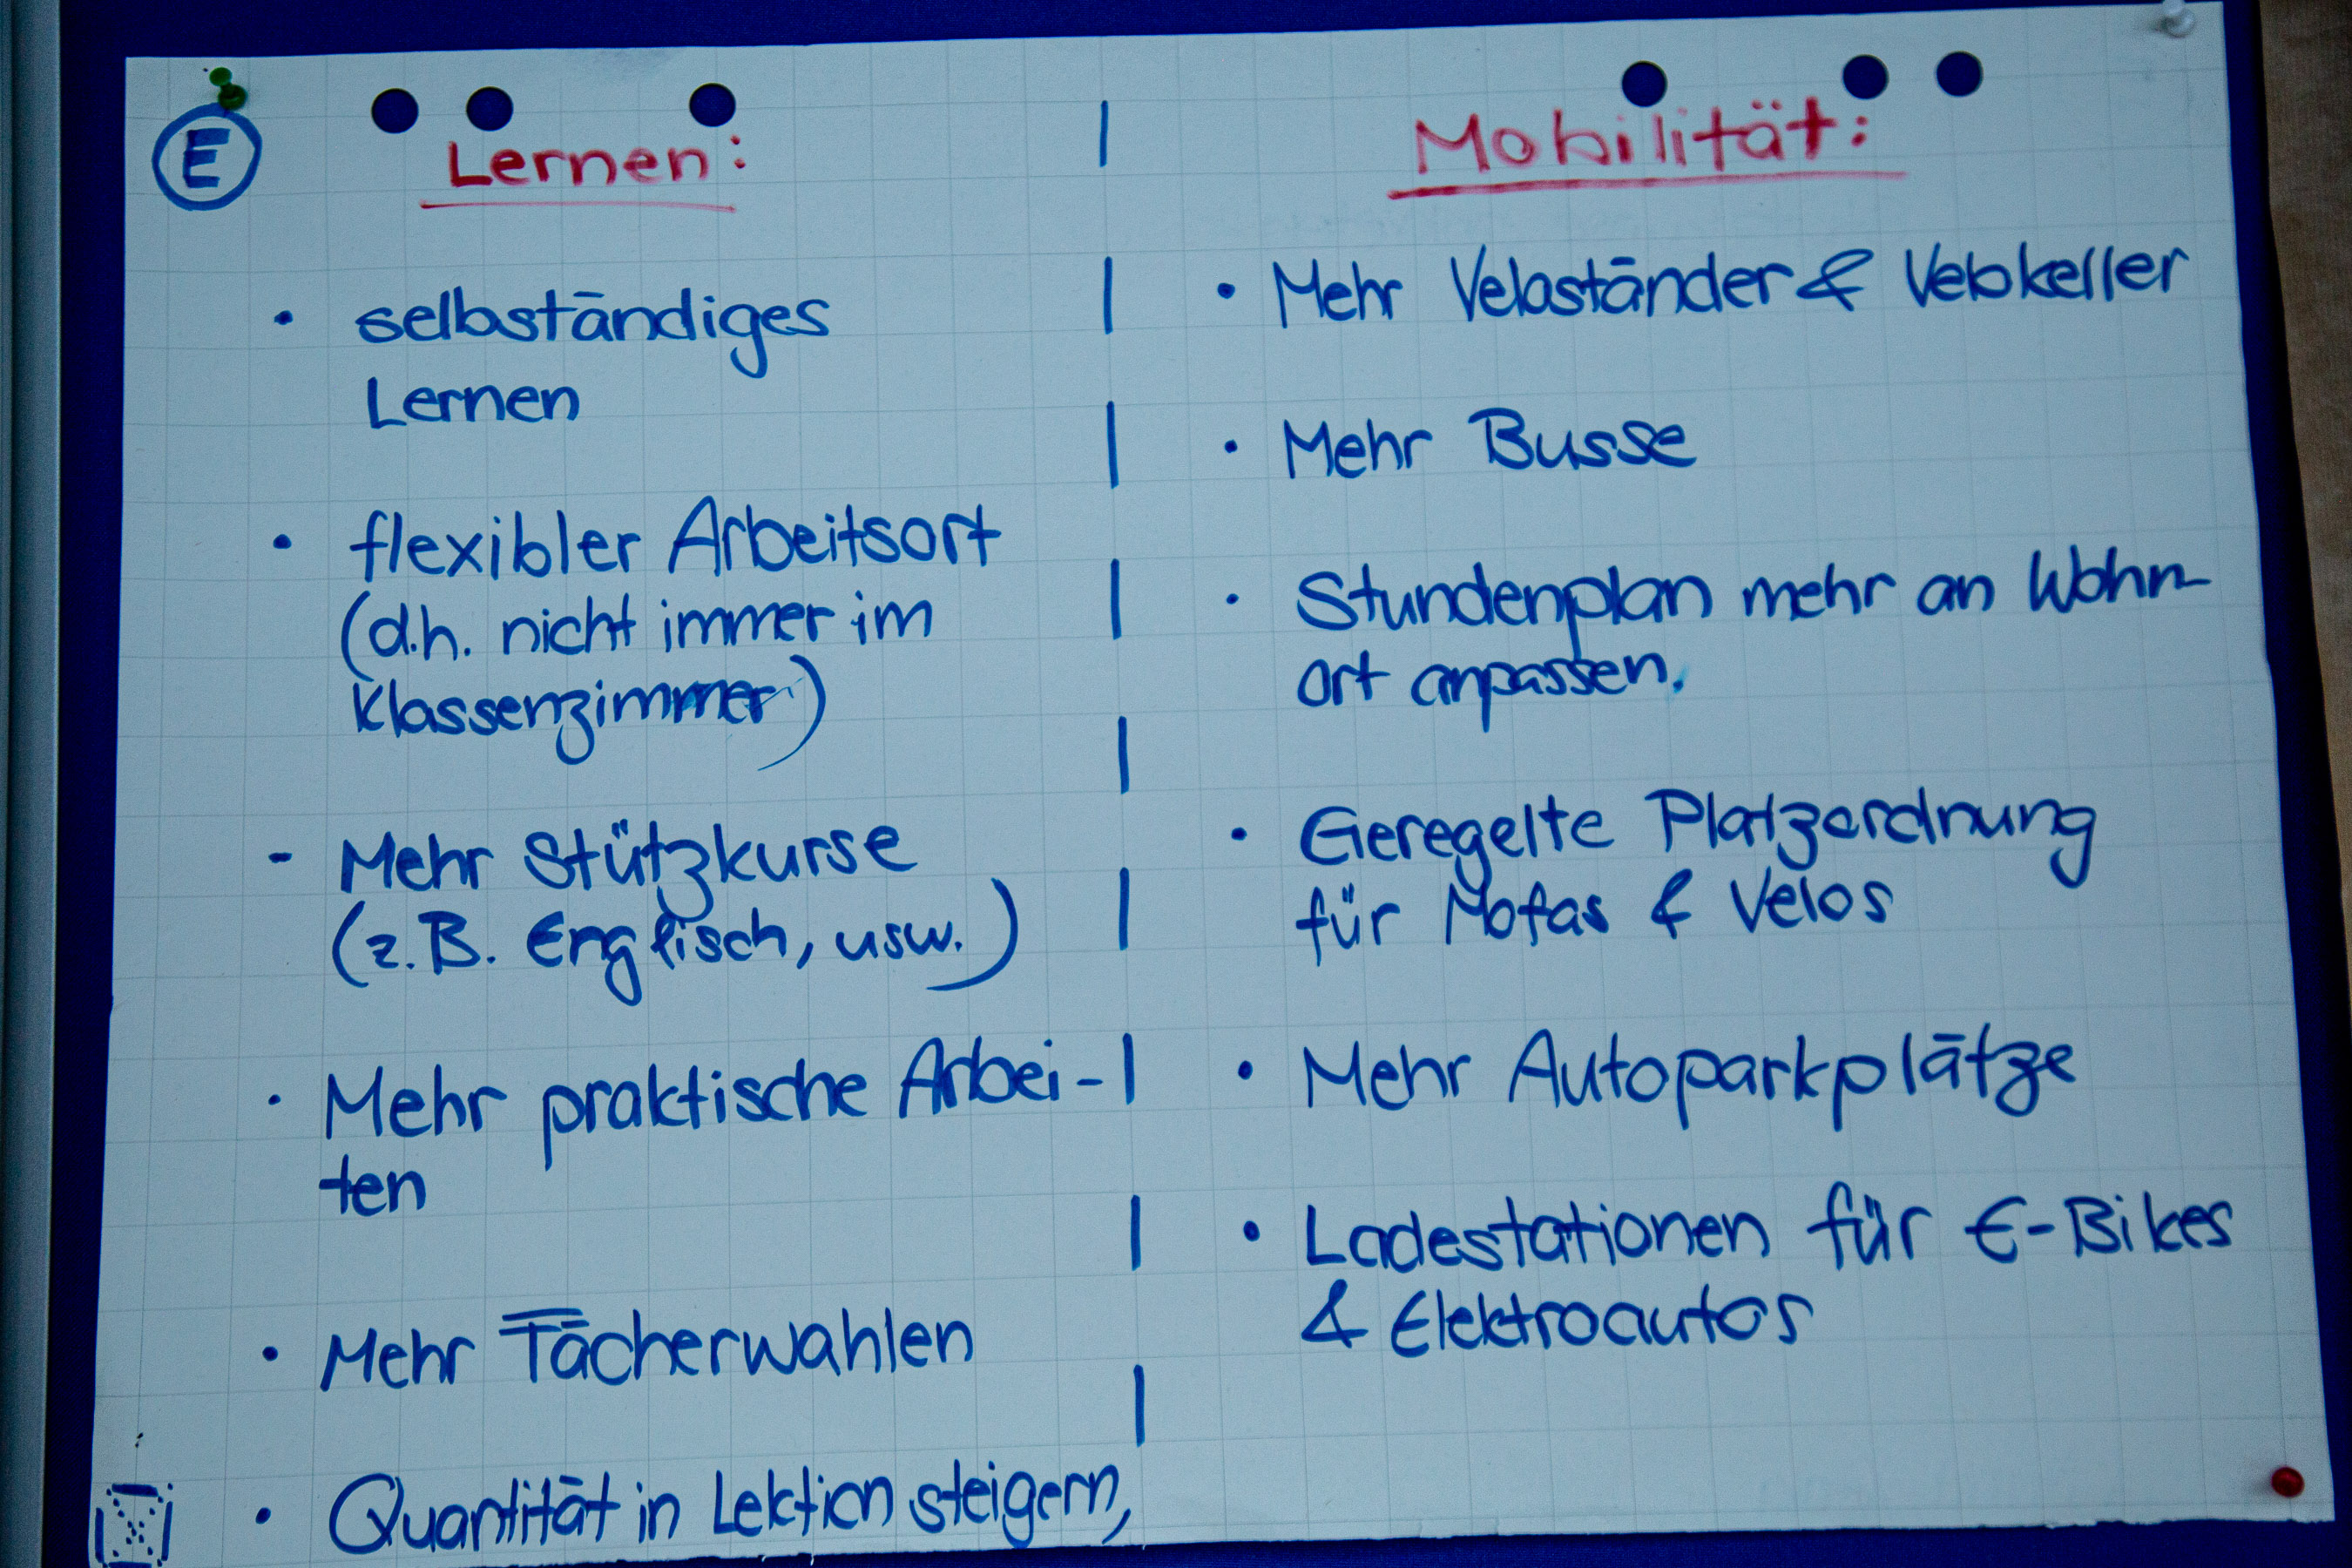 E
Lernen:
• selbständiges
Lernen
• flexibler Arbeitsort
(d.h. nicht immer im
Klassenzimmer)
- Mehr Stützkurse
(z.B. Englisch, usw.)
• Mehr praktische Arbei-
ten
• Mehr Fächerwahlen
• Quantität in Lektion steigern,
Mobilität:
• Mehr Veloständer & Velokeller
• Mehr Busse
• Stundenplan mehr an Wohn-
ort anpassen.
• Geregelte Platzordnung
für Mofas & Velos
• Mehr Autoparkplätze
• Ladestationen für E-Bikes
& Elektroautos